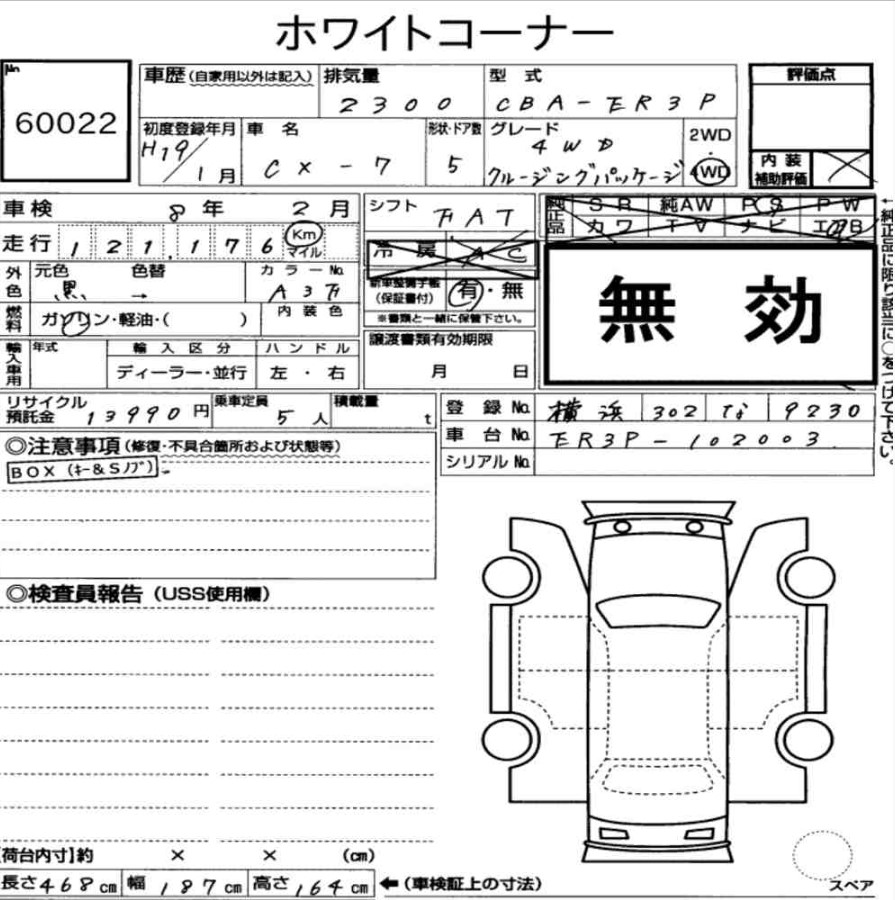 ホワイトコーナー
No 60022
車歴(自家用以外は記入) 排気量 型式 評価点
2300 CBA-ER3P
初度登録年月 車名 形状・ドア数 グレード 2WD
H19/1月 CX-7 5 4WD クルージングパッケージ 4WD
内装補助評価
車検 8年 2月 シフト FAT
純正品 SR 純AW PS PW
カワ TV ナビ エアB
走行 121,176 Km マイル
冷房 AC
外色 元色 色替 カラーNo.
黒 → A3F
新車整備手帳(保証書付) 有・無
※書類と一緒に保管下さい。
無効
燃料 ガソリン・軽油・( ) 内装色
輸入車用 年式 輸入区分 ハンドル
ディーラー・並行 左・右
譲渡書類有効期限
月 日
←純正品に限り該当に○をつけて下さい。
リサイクル預託金 13990円 乗車定員 5人 積載量 t
登録No. 横浜 302 な 9230
車台No. ER3P-102003
シリアルNo.
◎注意事項(修復・不具合箇所および状態等)
BOX (キー&Sノブ)
◎検査員報告(USS使用欄)
[荷台内寸]約 × × (cm)
長さ468cm 幅187cm 高さ164cm ←(車検証上の寸法)
スペア